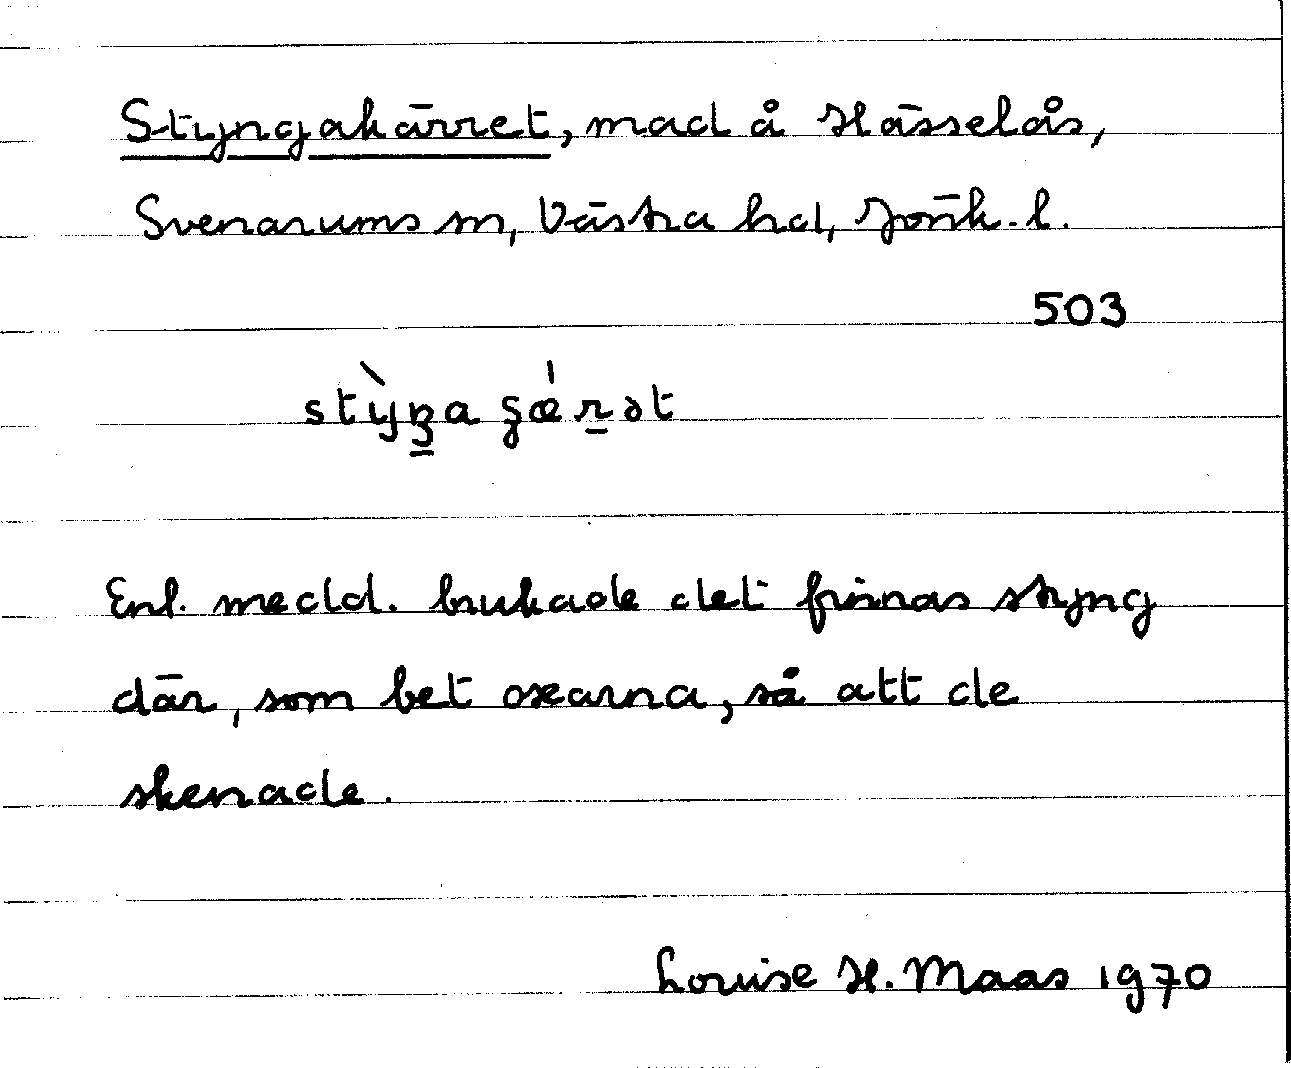 Styngakärret, mad å Hässelås,
Svenarums sn, Västra hd, Jönk. l.
503
Enl. medd. brukade det finnas styng
där, som bet oxarna, så att de
skenade.
Louise H. Maas 1970